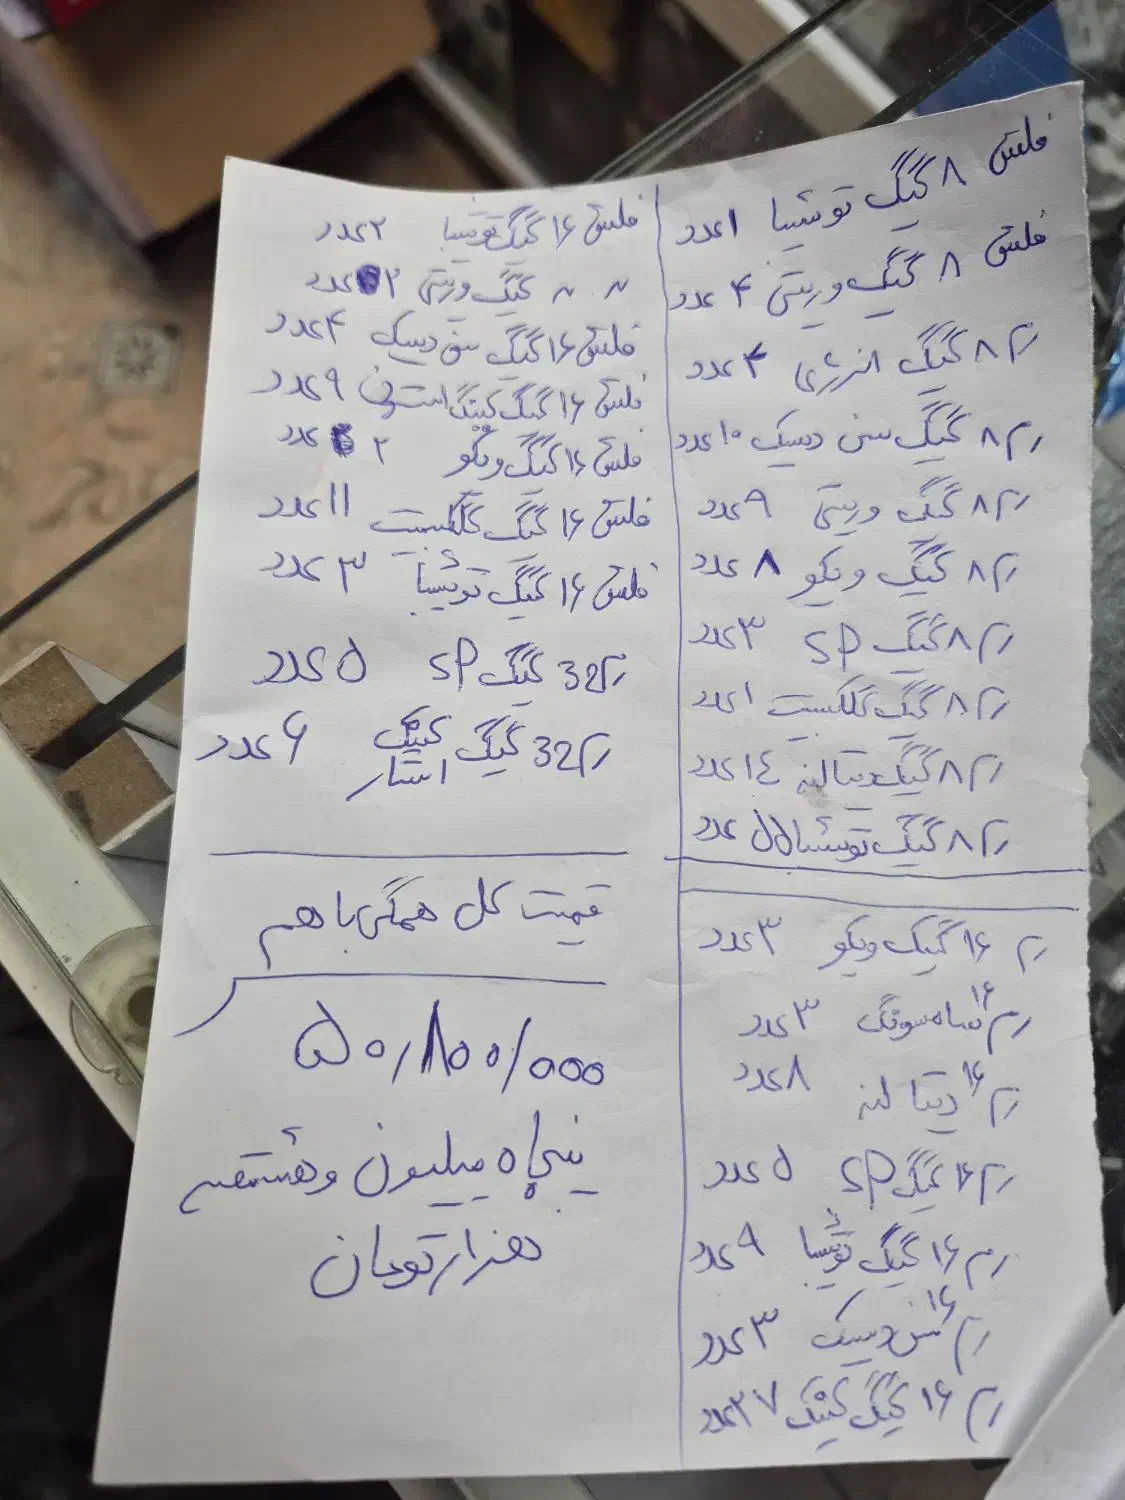 فلش ۸ گیگ توشیبا ۱ عدد
فلش ۸ گیگ وریتی ۴ عدد
رم ۸ گیگ انرژی ۴ عدد
رم ۸ گیگ سن دیسک ۱۰ عدد
رم ۸ گیگ وریتی ۹ عدد
رم ۸ گیگ ویکو ۸ عدد
رم ۸ گیگ SP ۳ عدد
رم ۸ گیگ گلکسبیت ۱ عدد
رم ۸ گیگ دیتا لنه ۱۴ عدد
رم ۸ گیگ توشیبا ۵۵ عدد
رم ۱۶ گیک ویکو ۳ عدد
رم ۱۶ سامسونگ ۳ عدد
رم ۱۶ دیتا لنه ۸ عدد
رم ۱۶ گیگ SP ۵ عدد
رم ۱۶ گیگ توشیبا ۹ عدد
رم ۱۶ سن دیسک ۳ عدد
رم ۱۶ گیگ کینگ ۳۷ عدد
فلش ۱۶ گیگ توشیبا ۲ عدد
〃 〃 گیگ وریتی ۲ عدد
فلش ۱۶ گیگ سن دیسک ۴ عدد
فلش ۱۶ گیگ کینگ استون ۹ عدد
فلش ۱۶ گیگ ویکو ۲ عدد
فلش ۱۶ گیگ گلکسبیت ۱۱ عدد
فلش ۱۶ گیگ توشیبا ۳ عدد
رم 32 گیگ SP ۵ عدد
رم 32 گیگ کینگ استار ۶ عدد
قیمت کل همگی با هم
۵۰٫۸۰۰/۰۰۰
پنجاه میلیون و هشتصد
هزار تومان